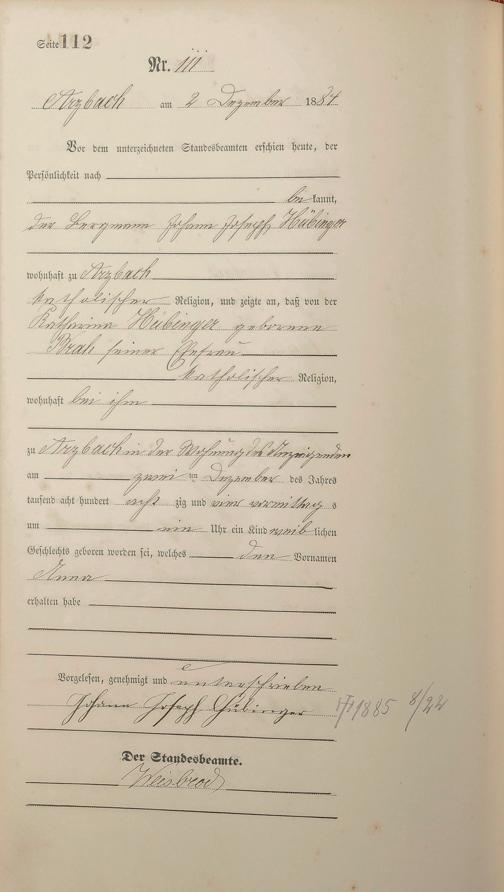 Seite 112
Nr. 111
Arzbach am 2 Dezember 1884
Vor dem unterzeichneten Standesbeamten erschien heute, der
Persönlichkeit nach
be kannt,
der Bergmann Johann Joseph Hübinger
wohnhaft zu Arzbach
katholischer Religion, und zeigte an, daß von der
Katharina Hübinger geborene
Brah seiner Ehefrau
katholischer Religion,
wohnhaft bei ihm
zu Arzbach in der Wohnung des Anzeigenden
am zwei ten Dezember des Jahres
tausend acht hundert acht zig und vier vormittag s
um ein Uhr ein Kind weib lichen
Geschlechts geboren worden sei, welches den Vornamen
Anna
erhalten habe
Vorgelesen, genehmigt und unterschrieben
Johann Joseph Hübinger
1885 8/22
Der Standesbeamte.
Weisbrod